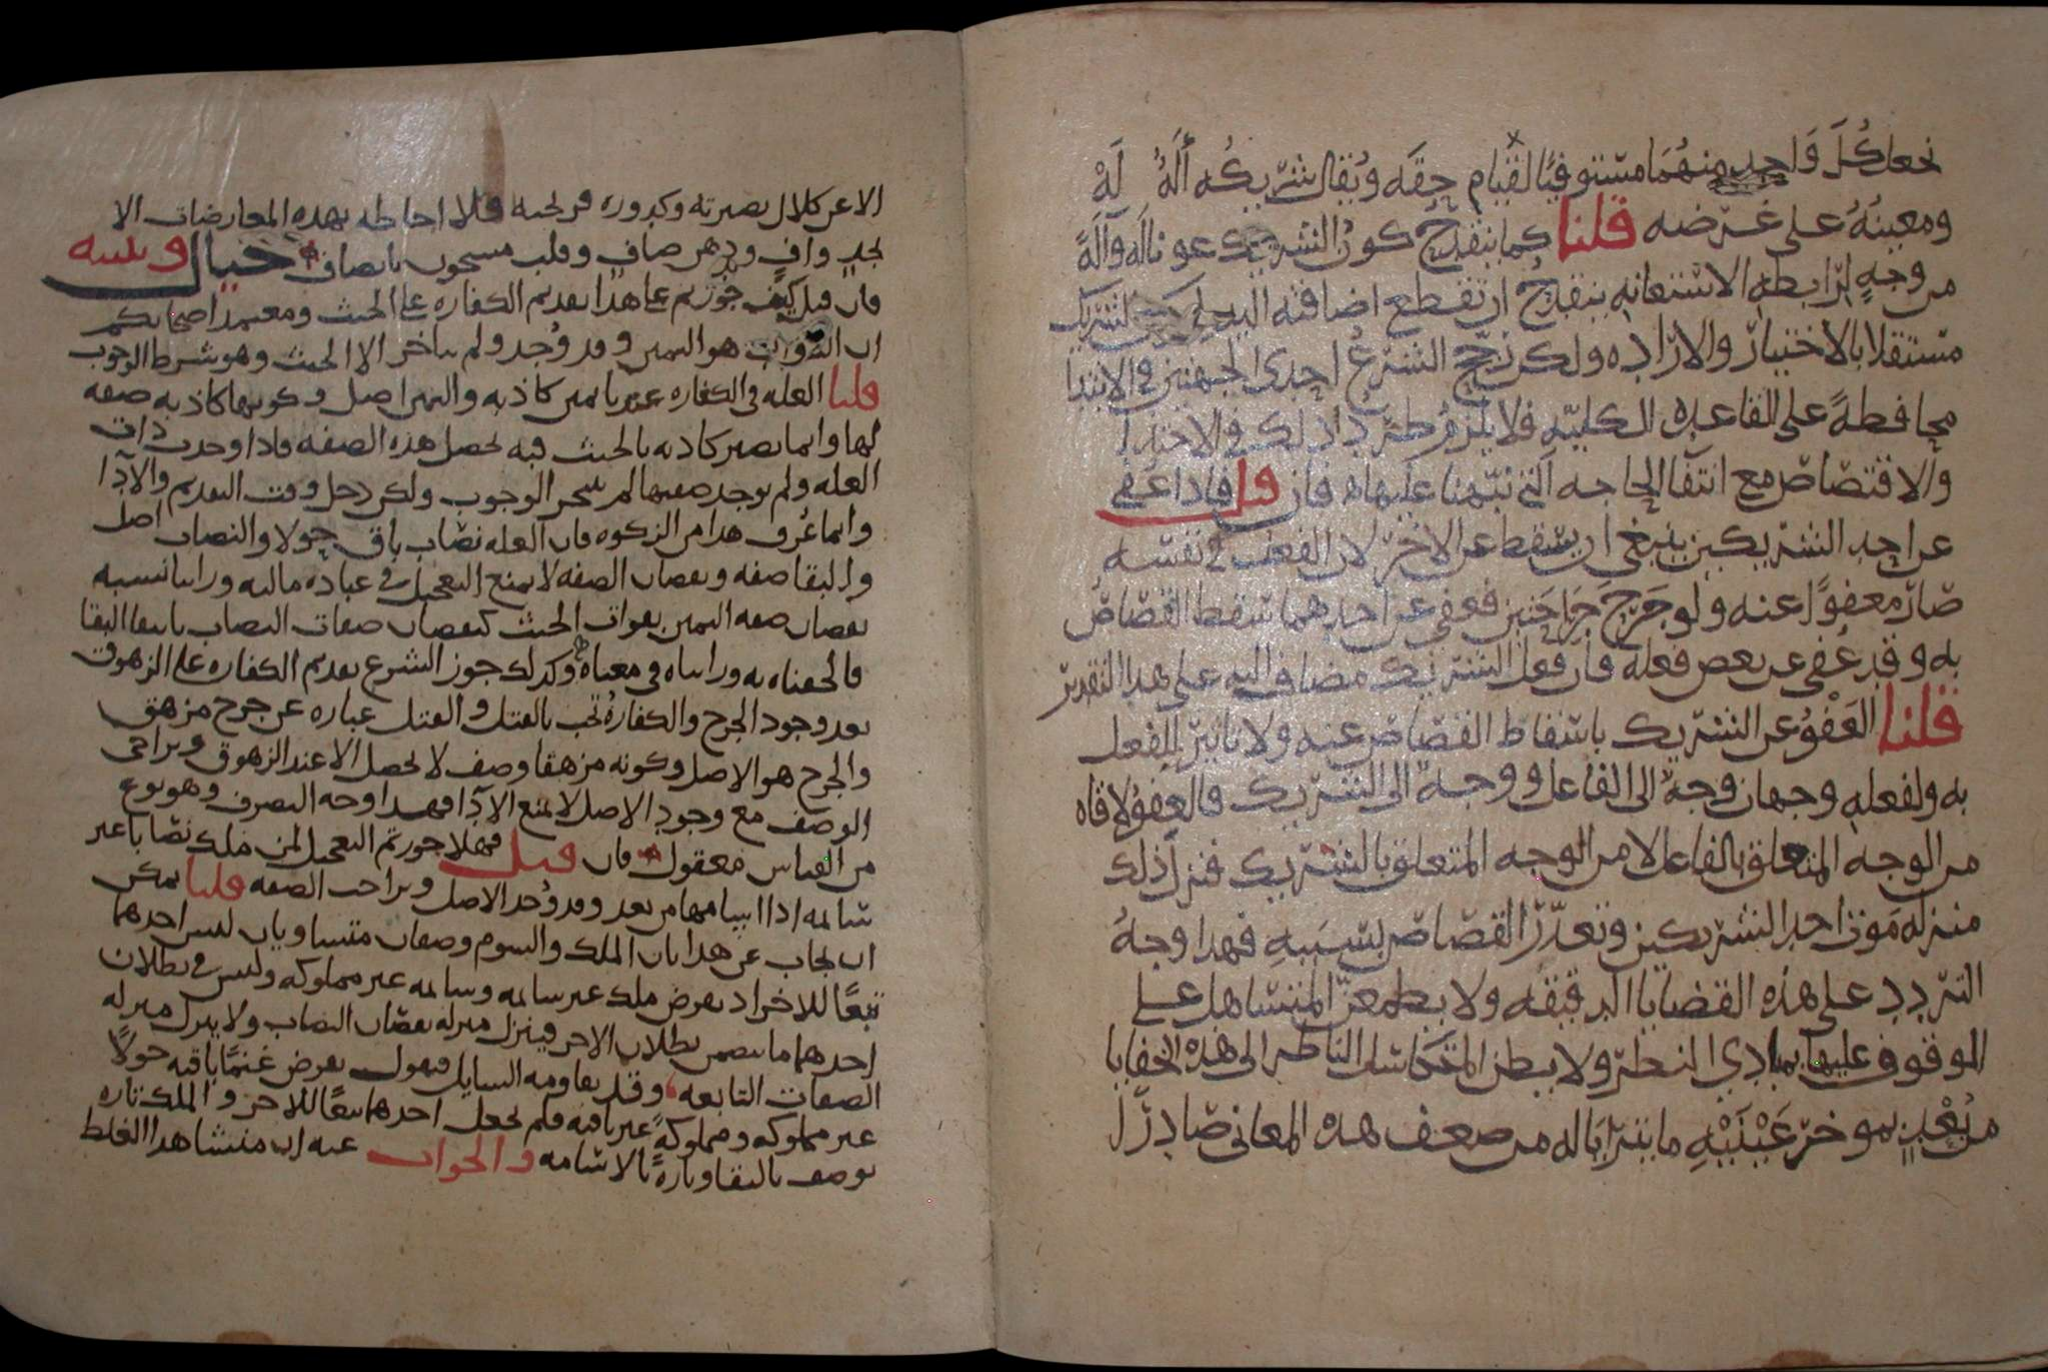 نجعل كُلَ وَاحد منهُمَا مستوفيًا لقيام حِقَه وَيُقال شريكُه أَلَةٌ لَهُ
ومعينُهُ على غرضه قلنا كما ينقدح كونُ الشريك عونا له وآلَةً
من وجهٍ لرابطه الاستعانه ينقدحُ ان تقطع اضافته اليه لكن الشريك
مستقلا بالاختيار والاراده ولكن رجّح الشرعُ احدى الجهتين في الابتدا
محافظةً على القاعده الكليّه فلا يلزمُ طرد ذلك في الاخذ
والاقتصاص مع انتفا الحاجه التي نبّهنا عليها فان قيل فاذا عفى
عن احد الشريكين ينبغي ان يسقط عن الاخر لان الفعل في نفسه
صار معفوًا عنه ولو جَرح جَرَاحَتين فعفى عن احدهما سقط القصاصُ
به وقد عُفي عن بعض فعله فان فعل الشريك مضاف اليه على هذا التقدير
قلنا العَفْوُ عن الشريك باسقاط القصاص عنه ولا تاثير للفعل
به ولفعله وجهان وجهٌ الى الفاعل ووجهٌ الى الشريك فالعفوُ لاقاه
من الوجه المتعلق بالفاعل لا من الوجه المتعلق بالشريك فنزل ذلك
منزله مَوت احد الشريكين وتعذّر القصاص بسَببهِ فهذا وجهُ
التردد على هذه القضايا الدقيقه ولا يطمعنّ المتساهل على
الوقوف عليها بمبادي النظر ولا يظن المتكاسل الناظر الى هذه الخفايا
من بُعْدٍ بموخر عَيْنَيْهِ ما يتراَيَا له من ضعف هذه المعاني صادرًا
الا عن كلال بصيرته وكدوره قريحته فلا احاطه بهذه المعارضات الا
لجدٍ وافٍ وذهن صافٍ وقلب مشحون بانصاف خيال وتنبيه
فان قيل كيف جوزتم على هذا تقديم الكفاره على الحنث ومعتمد اصحابكم
ان هو اليمين وقد وُجد ولم يتاخر الا الحنث وهو شرط الوجوب
قلنا العله في الكفاره عندنا يمين كاذبه واليمين اصل وكونها كاذبه صفه
لها وانما تصير كاذبه بالحنث فبه تحصل هذه الصفه فاذا وجدت ذات
العله ولم توجد صفتها لم يتنجز الوجوب ولكن دخل وقت التقديم والاَدَا
وانما عُرف هذا من الزكوه فان العله نصاب باق حولا والنصاب اصل
والبقا صفه ونقصان الصفه لا يمنع التعجيل في عباده ماليه وراينا نسبه
نقصان صفه اليمين بفوات الحنث كنقصان صفات النصاب بانتفا البقا
فالحقناه به وراىناه في معناه وكذلك جوز الشرع تقديم الكفاره على الزهوق
بعد وجود الجرح والكفارهُ تجب بالقتل والقتل عباره عن جرح مزهق
والجرح هو الاصل وكونه مزهقا وصف لا يحصل الا عند الزهوق وتراخى
الوصف مع وجود الاصل لا يمنع الاَدا فهذا وجه التصرف وهو نوع
من القياس معقول فان قيل فهلا جوزتم التعجيل لمن ملك نصابا غير
سائمه اذا اسامها من بعد وقد وُجد الاصل وتراخت الصفه قلنا يمكن
ان يجاب عن هذا بان الملك والسوم وصفان متساويان ليس احدهما
تبعًا للاخر اذ نفرض ملك غير سائمه وسائمه غير مملوكه وليس في بطلان
احدهما ما يتضمن بطلان الاخر فينزل منزله نقصان النصاب ولا ينزل منزله
الصفات التابعه وقد يقاومه السايل فيقول نفرض غنمًا باقيه حولاً
غير مملوكه ومملوكةً غير باقيه فلم نجعل احدهما تبعًا للاخر والملك تاره
يوصف بالبقا وتارةً بالاسامه والجواب عنه ان منشا هذا الغلط